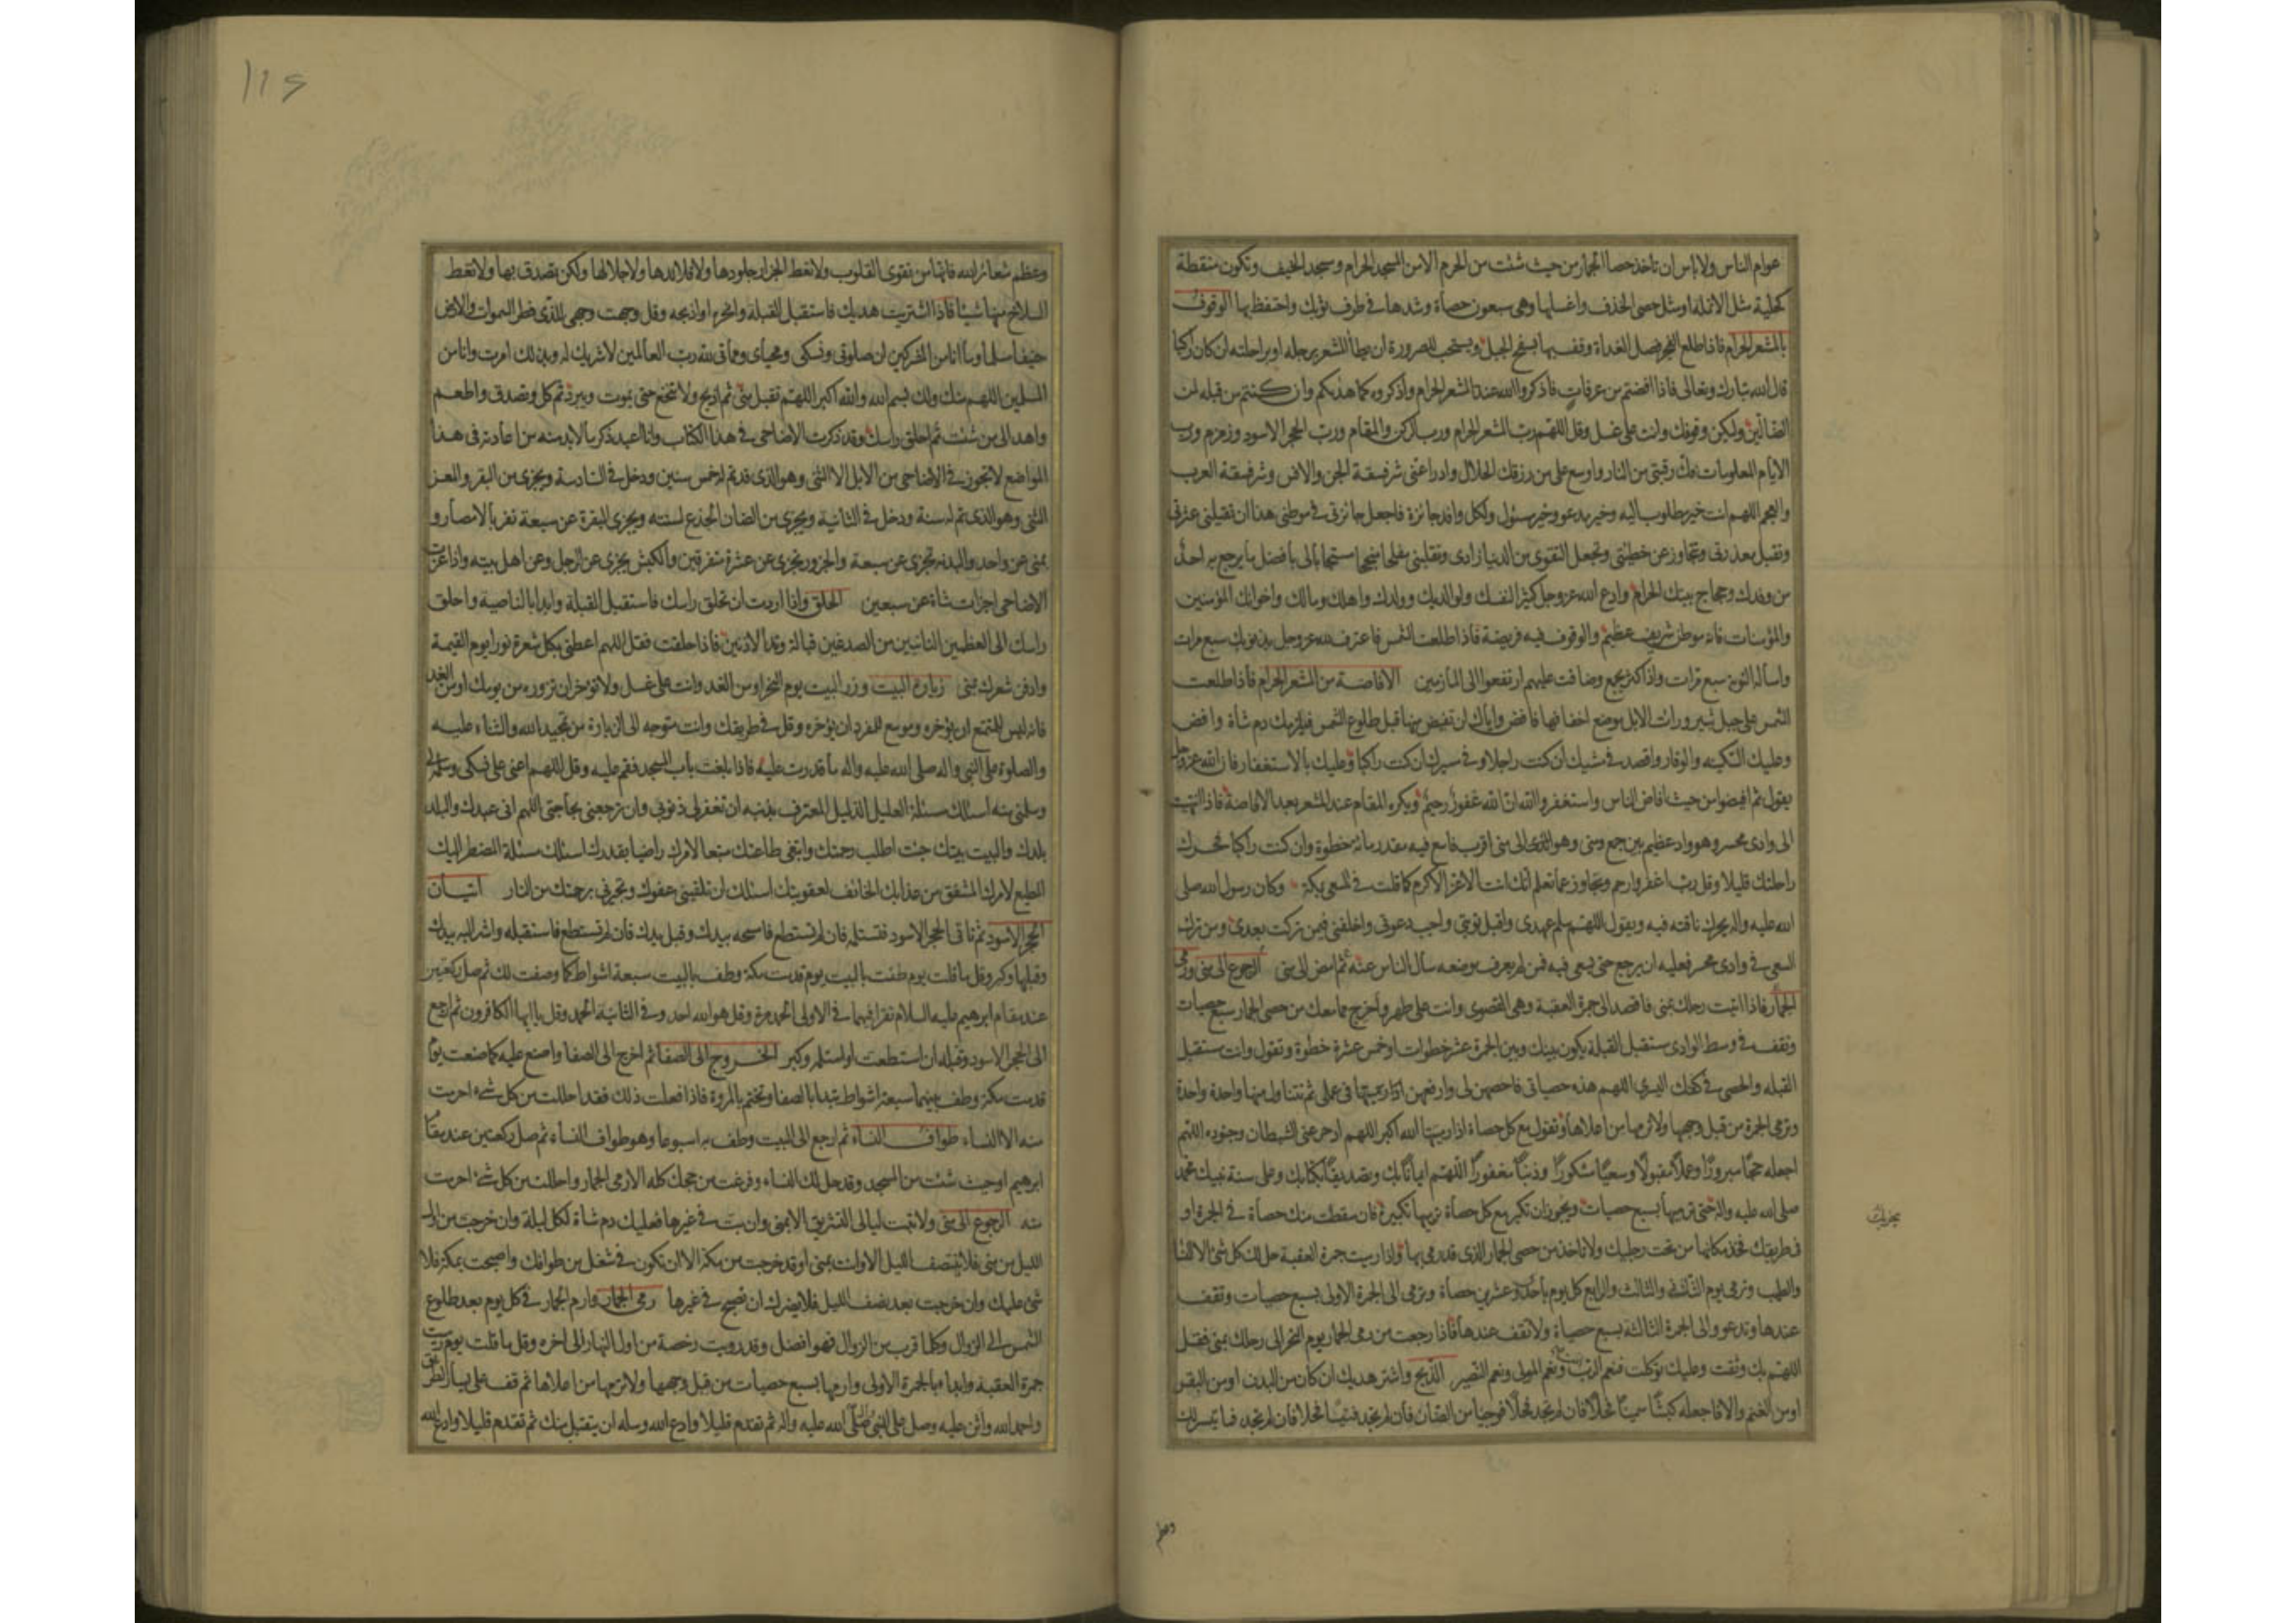 عوام الناس ولا باس ان تاخذ حصا الجمار من حيث شئت من الحرم الا من المسجد الحرام ومسجد الخيف وتكون منقطة
كحلية مثل الانملة او مثل حصى الخذف واغسلها وهى سبعون حصاة وشدها فى طرف ثوبك واحتفظ بها الوقوف
بالمشعر الحرام فاذا طلع الفجر فصل الغداة وقف بها بسفح الجبل ويستحب للصرورة ان يطأ المشعر برجله او براحلته ان كان راكبا
قال الله تبارك وتعالى فاذا افضتم من عرفات فاذكروا الله عند المشعر الحرام واذكروه كما هديكم وان كنتم من قبله لمن
الضالين وليكن وقوفك وانت على غسل وقل اللهم رب المشعر الحرام ورب الركن والمقام ورب الحجر الاسود وزمزم ورب
الايام المعلومات فك رقبتى من النار واوسع على من رزقك الحلال وادرا عنى شر فسقة الجن والانس وشر فسقة العرب
والعجم اللهم انت خير مطلوب اليه وخير مدعو وخير مسئول ولكل وافد جائزة فاجعل جائزتى فى موطنى هذا ان تقيلنى عثرتى
وتقبل معذرتى وتتجاوز عن خطيئتى وتجعل التقوى من الدنيا زادى وتقلبنى مفلحا منجحا مستجابا لى بافضل ما يرجع به احد
من وفدك وحجاج بيتك الحرام وادع الله عز وجل كثيرا لنفسك ولوالديك وولدك واهلك ومالك واخوانك المؤمنين
والمؤمنات فانه موطن شريف عظيم والوقوف فيه فريضة فاذا طلعت الشمس فاعترف لله عز وجل بذنوبك سبع مرات
واساله التوبة سبع مرات واذا كثر بجمع وضاقت عليهم ارتفعوا الى المأزمين الافاضة من المشعر الحرام فاذا طلعت
الشمس على جبل ثبير ورات الابل موضع اخفافها فافض واياك ان تفيض منها قبل طلوع الشمس فيلزمك دم شاة وافض
وعليك السكينه والوقار واقصد فى مشيك ان كنت راجلا وفى سيرك ان كنت راكبا وعليك بالاستغفار فان الله عز وجل
يقول ثم افيضوا من حيث افاض الناس واستغفروا الله ان الله غفور رحيم ويكره المقام عند المشعر بعد الافاضة فاذا انتهيت
الى وادى محسر وهو واد عظيم بين جمع ومنى وهو الذى الى منى اقرب فاسع فيه مقدر مائة خطوة وان كنت راكبا فحرك
راحلتك قليلا وقل رب اغفر وارحم وتجاوز عما تعلم انك انت الاعز الاكرم كما قلت فى السعى بمكة وكان رسول الله صلى
الله عليه واله يحرك ناقته فيه ويقول اللهم سلم عهدى واقبل توبتى واجب دعوتى واخلفنى فيمن تركت بعدى ومن ترك
السعى فى وادى محسر فعليه ان يرجع حتى يسعى فيه فمن لم يعرف موضعه سال الناس عنه ثم امض الى منى الرجوع الى منى ورمى
الجمار فاذا اتيت رحلك بمنى فاقصد الى جمرة العقبة وهى القصوى وانت على طهر واخرج مما معك من حصى الجمار سبع حصيات
وتقف فى وسط الوادى مستقبل القبلة يكون بينك وبين الجمرة عشر خطوات او خمس عشرة خطوة وتقول وانت مستقبل
القبله والحصى فى كفك اليسرى اللهم هذه حصياتى فاحصهن لى وارفعهن فى عملى ثم تتناول منها واحدة واحدة
وترمى الجمرة من قبل وجهها ولا ترمها من اعلاها وتقول مع كل حصاة اذا رميتها الله اكبر اللهم ادحر عنى الشيطان وجنوده اللهم
اجعله حجا مبرورا وعملا مقبولا وسعيا مشكورا وذنبا مغفورا اللهم ايمانا بك وتصديقا بكتابك وعلى سنة نبيك محمد
صلى الله عليه واله حتى ترميها بسبع حصيات ويجوز ان تكبر مع كل حصاة ترميها تكبيرة فان سقطت منك حصاة فى الجمرة او
فى طريقك فخذ مكانها من تحت رجليك ولا تاخذ من حصى الجمار الذى قد رمى بها واذا رميت جمرة العقبة حل لك كل شئ الا النسا
والطيب وترمى يوم الثانى والثالث والرابع كل يوم باحدى وعشرين حصاة وترمى الى الجمرة الاولى بسبع حصيات وتقف
عندها وتدعو والى الجمرة الثالثة بسبع حصياة ولا تقف عندها فاذا رجعت من رمى الجمار يوم النحر الى رحلك بمنى فقل
اللهم بك وثقت وعليك توكلت فنعم الرب ونعم المولى ونعم النصير الذبح واشتر هديك ان كان من البدن او من البقر
او من الغنم والا فاجعله كبشا سمينا فحلا فان لم تجد فحلا فموجيا من الضان فان لم تجد فتيسا فحلا فان لم تجد فما تيسر لك
يجزيك
وعظم
١١٤
وعظم شعائر الله فانها من تقوى القلوب ولا تعط الجزار جلودها ولا قلائدها ولا جلالها ولكن تصدق بها ولا تعط
السلاخ منها شيئا فاذا اشتريت هديك فاستقبل القبلة وانحره او اذبحه وقل وجهت وجهى للذى فطر السموات والارض
حنيفا مسلما وما انا من المشركين ان صلوتى ونسكى ومحياى ومماتى لله رب العالمين لا شريك له وبذلك امرت وانا من
المسلمين اللهم منك ولك بسم الله والله اكبر اللهم تقبل منى ثم اذبح ولا تنخع حتى يموت ويبرد ثم كل وتصدق واطعم
واهد الى من شئت ثم احلق راسك وقد ذكرت الاضاحى فى هذا الكتاب وانا اعيد ذكر ما لا بد منه من اعادته فى هذا
المواضع لا تجوز فى الاضاحى من الابل الا الثنى وهو الذى قد تم له خمس سنين ودخل فى السادسة ويجزى من البقر والمعز
الثنى وهو الذى تم له سنة ودخل فى الثانية ويجزى من الضان الجذع لسنته ويجزى البقرة عن سبعة نفر بالامصار و
بمنى عن واحد والبدنه تجزى عن سبعة والجزور تجزى عن عشرة متفرقين والكبش يجزى عن الرجل وعن اهل بيته واذا عزت
الاضاحى اجزات شاة عن سبعين الحلق واذا اردت ان تحلق راسك فاستقبل القبلة وابدا بالناصية واحلق
راسك الى العظمين النابتين من الصدغين قبالة وتد الاذنين فاذا حلقت فقل اللهم اعطنى بكل شعرة نورا يوم القيمة
وادفن شعرك بمنى زيارة البيت وزر البيت يوم النحر او من الغد وانت على غسل ولا تؤخر ان تزوره من يومك او من الغد
فانه ليس للمتمتع ان يؤخره وموسع للمفرد ان يؤخره وقل فى طريقك وانت متوجه الى الزيارة من تمجيد الله والثناء عليه
والصلوة على النبى واله صلى الله عليه واله ما قدرت عليه فاذا بلغت باب المسجد فقم عليه وقل اللهم اعنى على نسكى وسلمه لى
وسلمنى منه اسئلك مسئلة العليل الذليل المعترف بذنبه ان تغفر لى ذنوبى وان ترجعنى بحاجتى اللهم انى عبدك والبلد
بلدك والبيت بيتك جئت اطلب رحمتك وابتغى طاعتك متبعا لامرك راضيا بقدرك اسئلك مسئلة المضطر اليك
المطيع لامرك المشفق من عذابك الخائف لعقوبتك اسئلك ان تلقينى عفوك وتجيرنى برحمتك من النار اتيان
الحجر الاسود ثم تاتى الحجر الاسود فتستلمه فان لم تستطع فامسحه بيدك وقبل يدك فان لم تستطع فاستقبله واشر اليه بيدك
وقبلها وكبر وقل ما قلت يوم طفت بالبيت يوم قدمت مكة وطف بالبيت سبعة اشواط كما وصفت لك ثم صل ركعتين
عند مقام ابرهيم عليه السلام تقرا فيهما فى الاولى الحمد مرة وقل هو الله احد وفى الثانية الحمد وقل يا ايها الكافرون ثم ارجع
الى الحجر الاسود وقبله ان استطعت او استلمه وكبر الخروج الى الصفا ثم اخرج الى الصفا واصنع عليه كما صنعت يوم
قدمت مكة وطف بينهما سبعة اشواط تبدا بالصفا وتختم بالمروة فاذا فعلت ذلك فقد احللت من كل شئ احرمت
منه الا النساء طواف النساء ثم ارجع الى البيت وطف به اسبوعا وهو طواف النساء ثم صل ركعتين عند مقام
ابرهيم او حيث شئت من المسجد وقد حل لك النساء وفرغت من حجك كله الا رمى الجمار واحللت من كل شئ احرمت
منه الرجوع الى منى ولا تبت ليالى التشريق الا بمنى وان بت فى غيرها فعليك دم شاة لكل ليلة وان خرجت من اول
الليل من منى فلا ينتصف الليل الا وانت بمنى او قد خرجت من مكة الا ان تكون فى شغل من طوافك واصبحت بمكة فلا
شئ عليك وان خرجت بعد نصف الليل فلا يضرك ان تصبح فى غيرها رمى الجمار وارم الجمار فى كل يوم بعد طلوع
الشمس الى الزوال وكلما قرب من الزوال فهو افضل وقد رويت رخصة من اول النهار الى اخره وقل ما قلت يوم رميت
جمرة العقبة وابدا بالجمرة الاولى وارمها بسبع حصيات من قبل وجهها ولا ترمها من اعلاها ثم قف على يسار الطريق
واحمد الله واثن عليه وصل على النبى صلى الله عليه واله ثم تقدم قليلا وادع الله وسله ان يتقبل منك ثم تقدم قليلا وادع الله